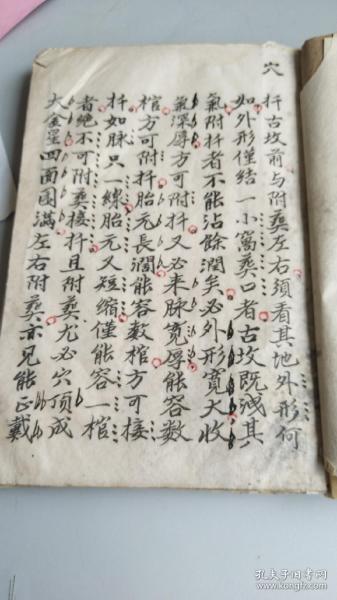 穴
扦古坟前与附葬左右須看其地外形何
如外形僅结一小窩葬口者古坟既浅其
氣附扦者不能沾餘潤矣必外形寬大收
氣深厚方可附扦又必来脉寬厚能容数
棺方可附扦胎元長濶能容数棺方可接
扦如脉只一線胎元又短缩僅能容一棺
者绝不可附葬接扦且附葬尤必穴顶成
大金星四面圓满左右附葬亦見能正戴
孔夫子旧书网